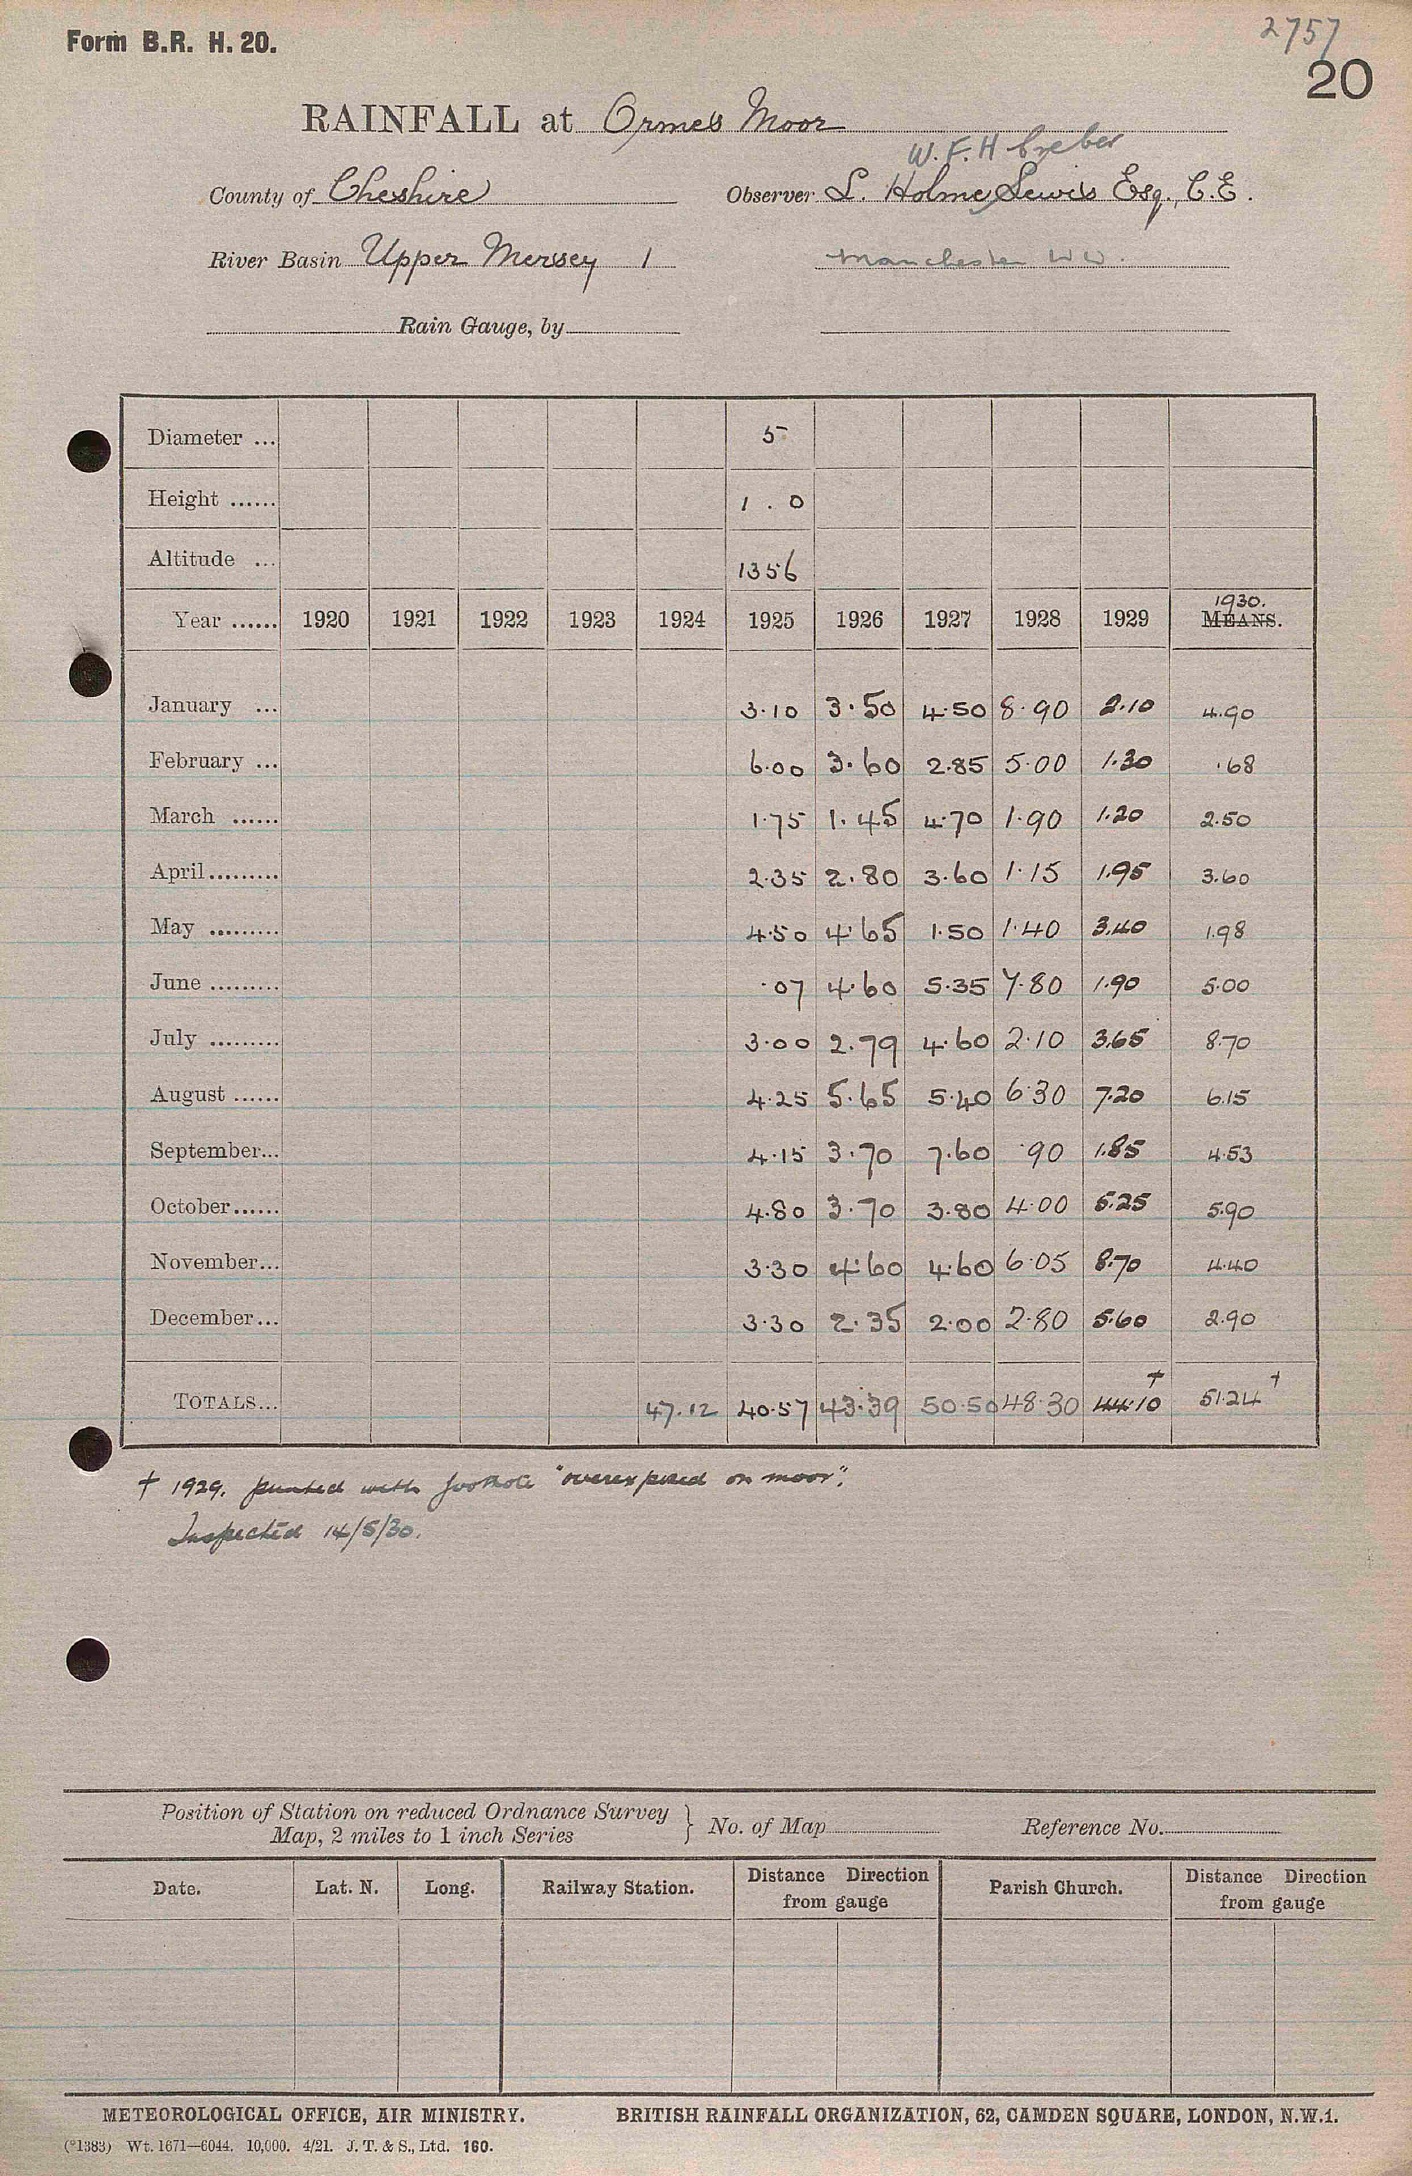 Form B.R. H. 20.
2757
20
RAINFALL at Ormes Moor
W. F. H Creber
County of Cheshire Observer L. Holme Lewis Esq., C.E.
River Basin Upper Mersey 1 Manchester WW.
Rain Gauge, by
Diameter ... 5
Height ...... 1 . 0
Altitude ... 1356
1930.
Year ...... 1920 1921 1922 1923 1924 1925 1926 1927 1928 1929 MEANS.
January ... 3.10 3.50 4.50 8.90 2.10 4.90
February ... 6.00 3.60 2.85 5.00 1.30 .68
March ...... 1.75 1.45 4.70 1.90 1.20 2.50
April ......... 2.35 2.80 3.60 1.15 1.95 3.60
May ......... 4.50 4.65 1.50 1.40 3.40 1.98
June ......... .07 4.60 5.35 7.80 1.90 5.00
July ......... 3.00 2.79 4.60 2.10 3.65 8.70
August ...... 4.25 5.65 5.40 6.30 7.20 6.15
September... 4.15 3.70 7.60 .90 1.85 4.53
October ...... 4.80 3.70 3.80 4.00 5.25 5.90
November... 3.30 4.60 4.60 6.05 8.70 4.40
December... 3.30 2.35 2.00 2.80 5.60 2.90
TOTALS... 47.12 40.57 43.39 50.50 48.30 44.10† 51.24†
† 1929. printed with footnote "overexposed on moor".
Inspected 14/5/30.
Position of Station on reduced Ordnance Survey
Map, 2 miles to 1 inch Series } No. of Map Reference No.
Date. Lat. N. Long. Railway Station. Distance Direction Parish Church. Distance Direction
from gauge from gauge
METEOROLOGICAL OFFICE, AIR MINISTRY. BRITISH RAINFALL ORGANIZATION, 62, CAMDEN SQUARE, LONDON, N.W.1.
(*1383) Wt. 1671—6044. 10,000. 4/21. J. T. & S., Ltd. 160.